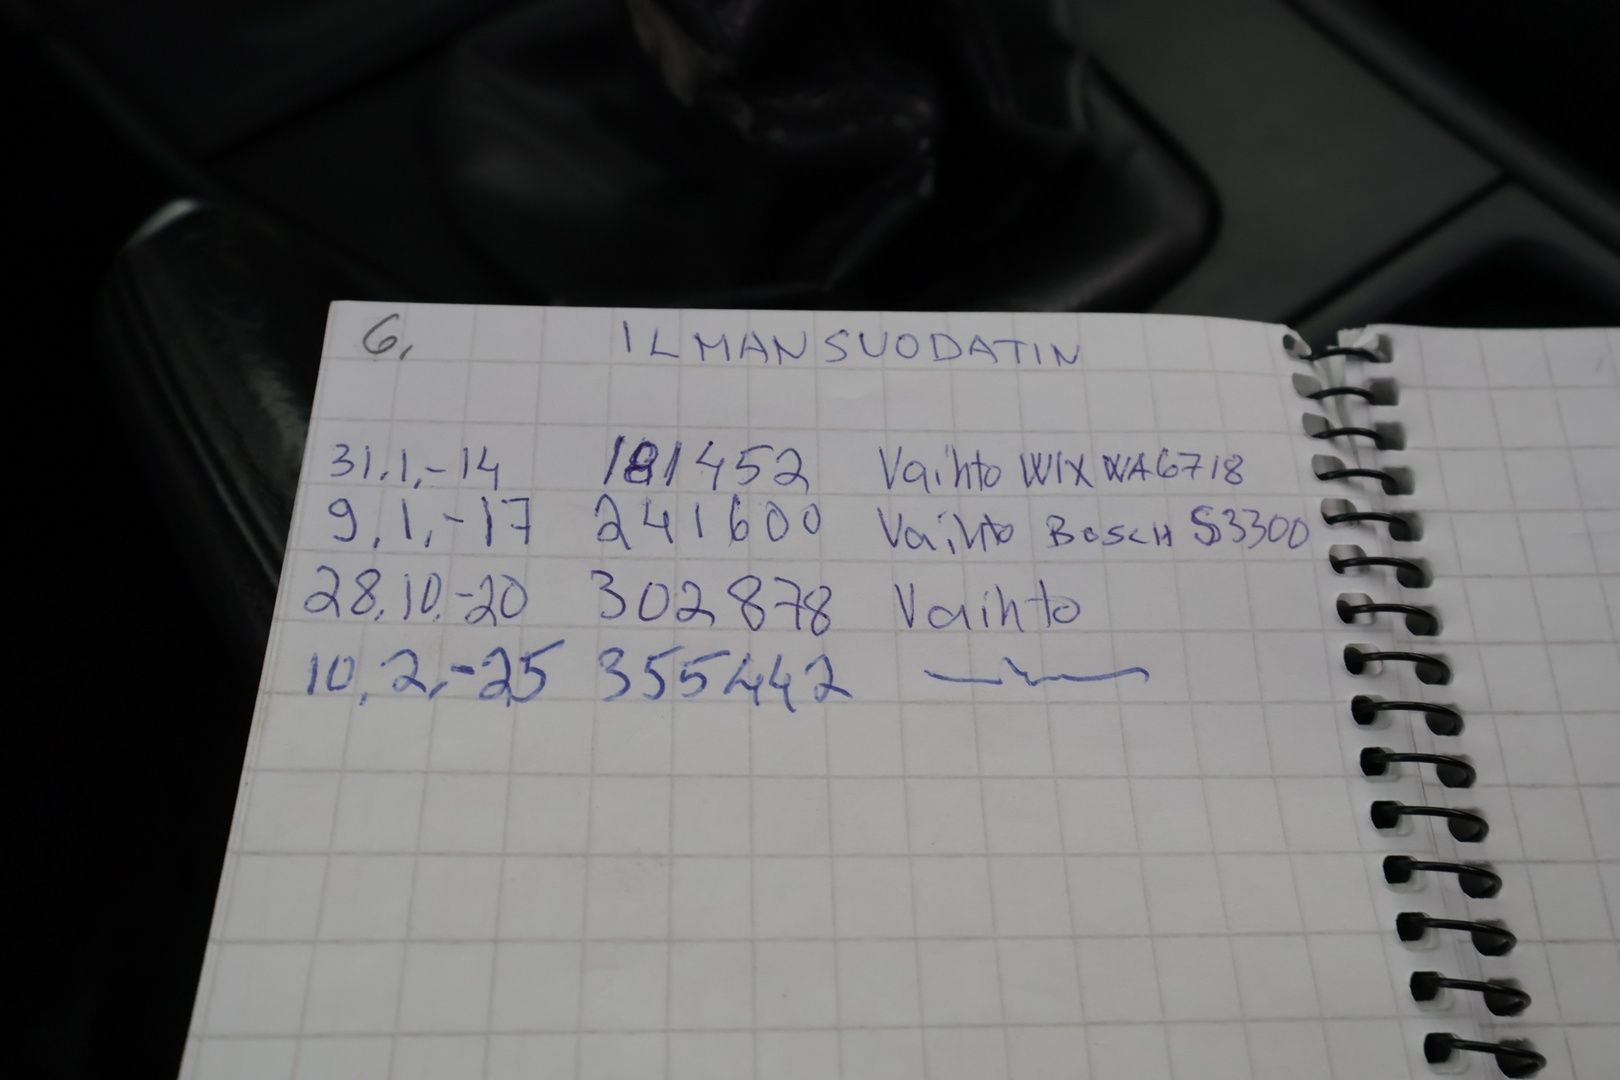 6. ILMANSUODATIN
31.1.-14 181452 Vaihto WIX WA6718
9.1.-17 241600 Vaihto BOSCH S3300
28.10.-20 302878 Vaihto
10.2.-25 355442 —"—